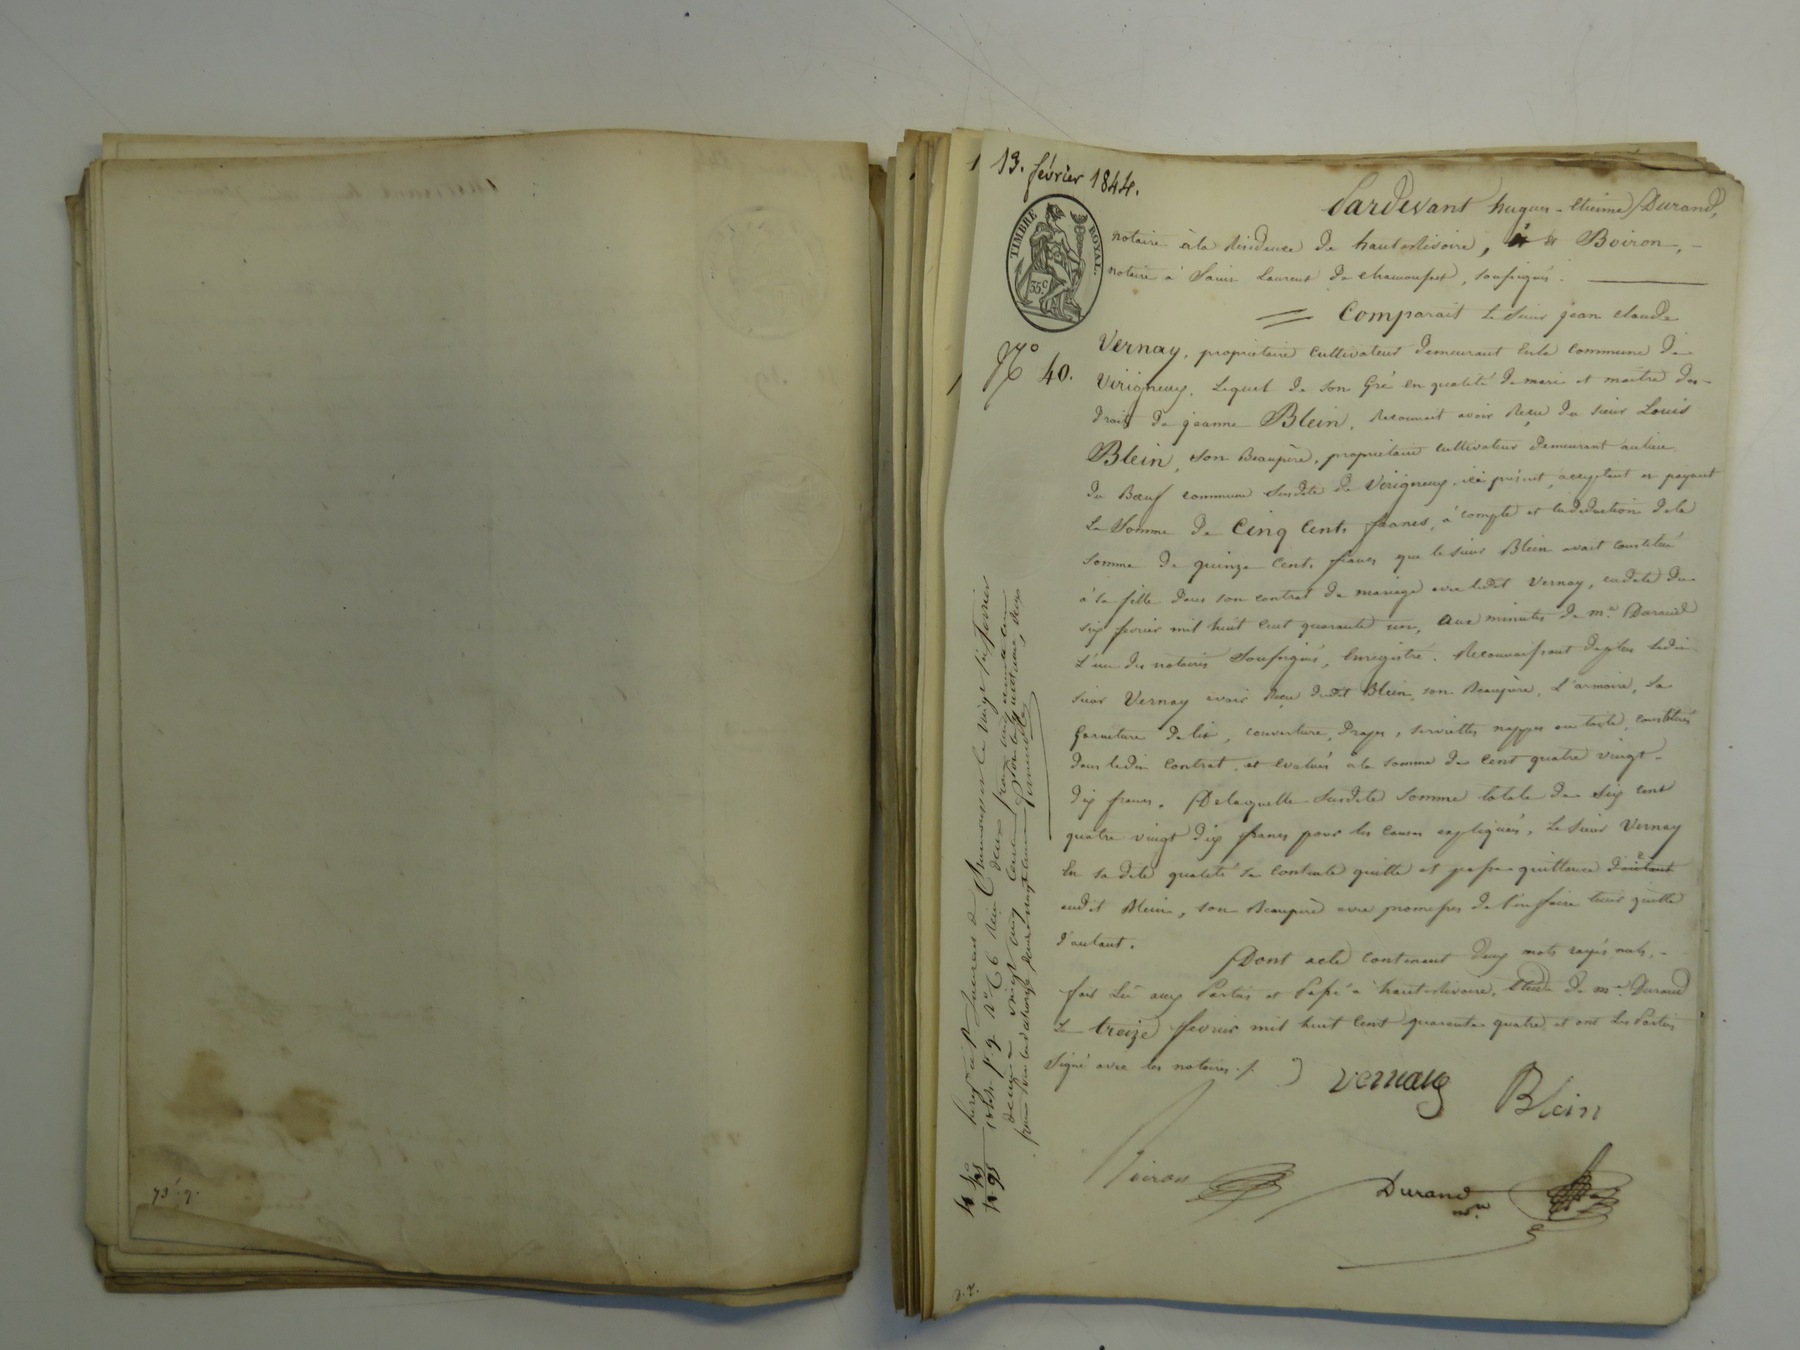 13. février 1844.
Pardevant hugues-etienne Durand,
notaire à la Résidence de hauterivoire, & Boiron,
notaire à Saint Laurent de chamousset, soussignés.
TIMBRE ROYAL.
35.c
Comparait le Sieur jean claude
N.o 40.
Vernay, propriétaire cultivateur demeurant en la commune de
Virigneux. Lequel de son Gré en qualité de mari et maitre des
droits de jeanne Blein, Reconnait avoir Reçu du sieur Louis
Blein, son Beaupère, propriétaire cultivateur demeurant au lieu
du Boeuf commune susdite de Virigneux, ici présent, acceptant et payant
La Somme de Cinq Cents francs, à compte et en déduction de la
somme de quinze Cents francs que le sieur Blein avait constitué
à sa fille dans son contrat de mariage avec ledit Vernay, en date du
six fevrier mil huit cent quarante un, aux minutes de m.e Durand
L'un des notaires Soussignés, Enregistré. Reconnaissant de plus ledit
sieur Vernay avoir Reçu dudit Blein, son Beaupère, L'armoire, la
Garniture de lit, couverture, Draps, serviettes nappes en toile, constitués
dans ledit Contrat, et Evalués à la somme de Cent quatre vingt
dix francs. De laquelle susdite somme totale de six cent
quatre vingt dix francs pour les causes expliquées, Le sieur Vernay
En sa dite qualité se contente quitte et passe quittance d'autant
audit Blein, son Beaupère avec promesses de l'en faire tenir quitte
d'autant.
Dont acte contenant deux mots rayés nuls,
fait Lû aux Parties et Passé à hauterivoire, Etude de m.e Durand
Le treize fevrier mil huit Cent quarante quatre, et ont Les Parties
Signé avec les notaires./.
vernay
Blein
Boiron
Durand
n.re
Enreg.é à St Laurent de Chamousset le vingt six fevrier
1844 f.o 9 V.o C 6 Reçu deux francs cinquante